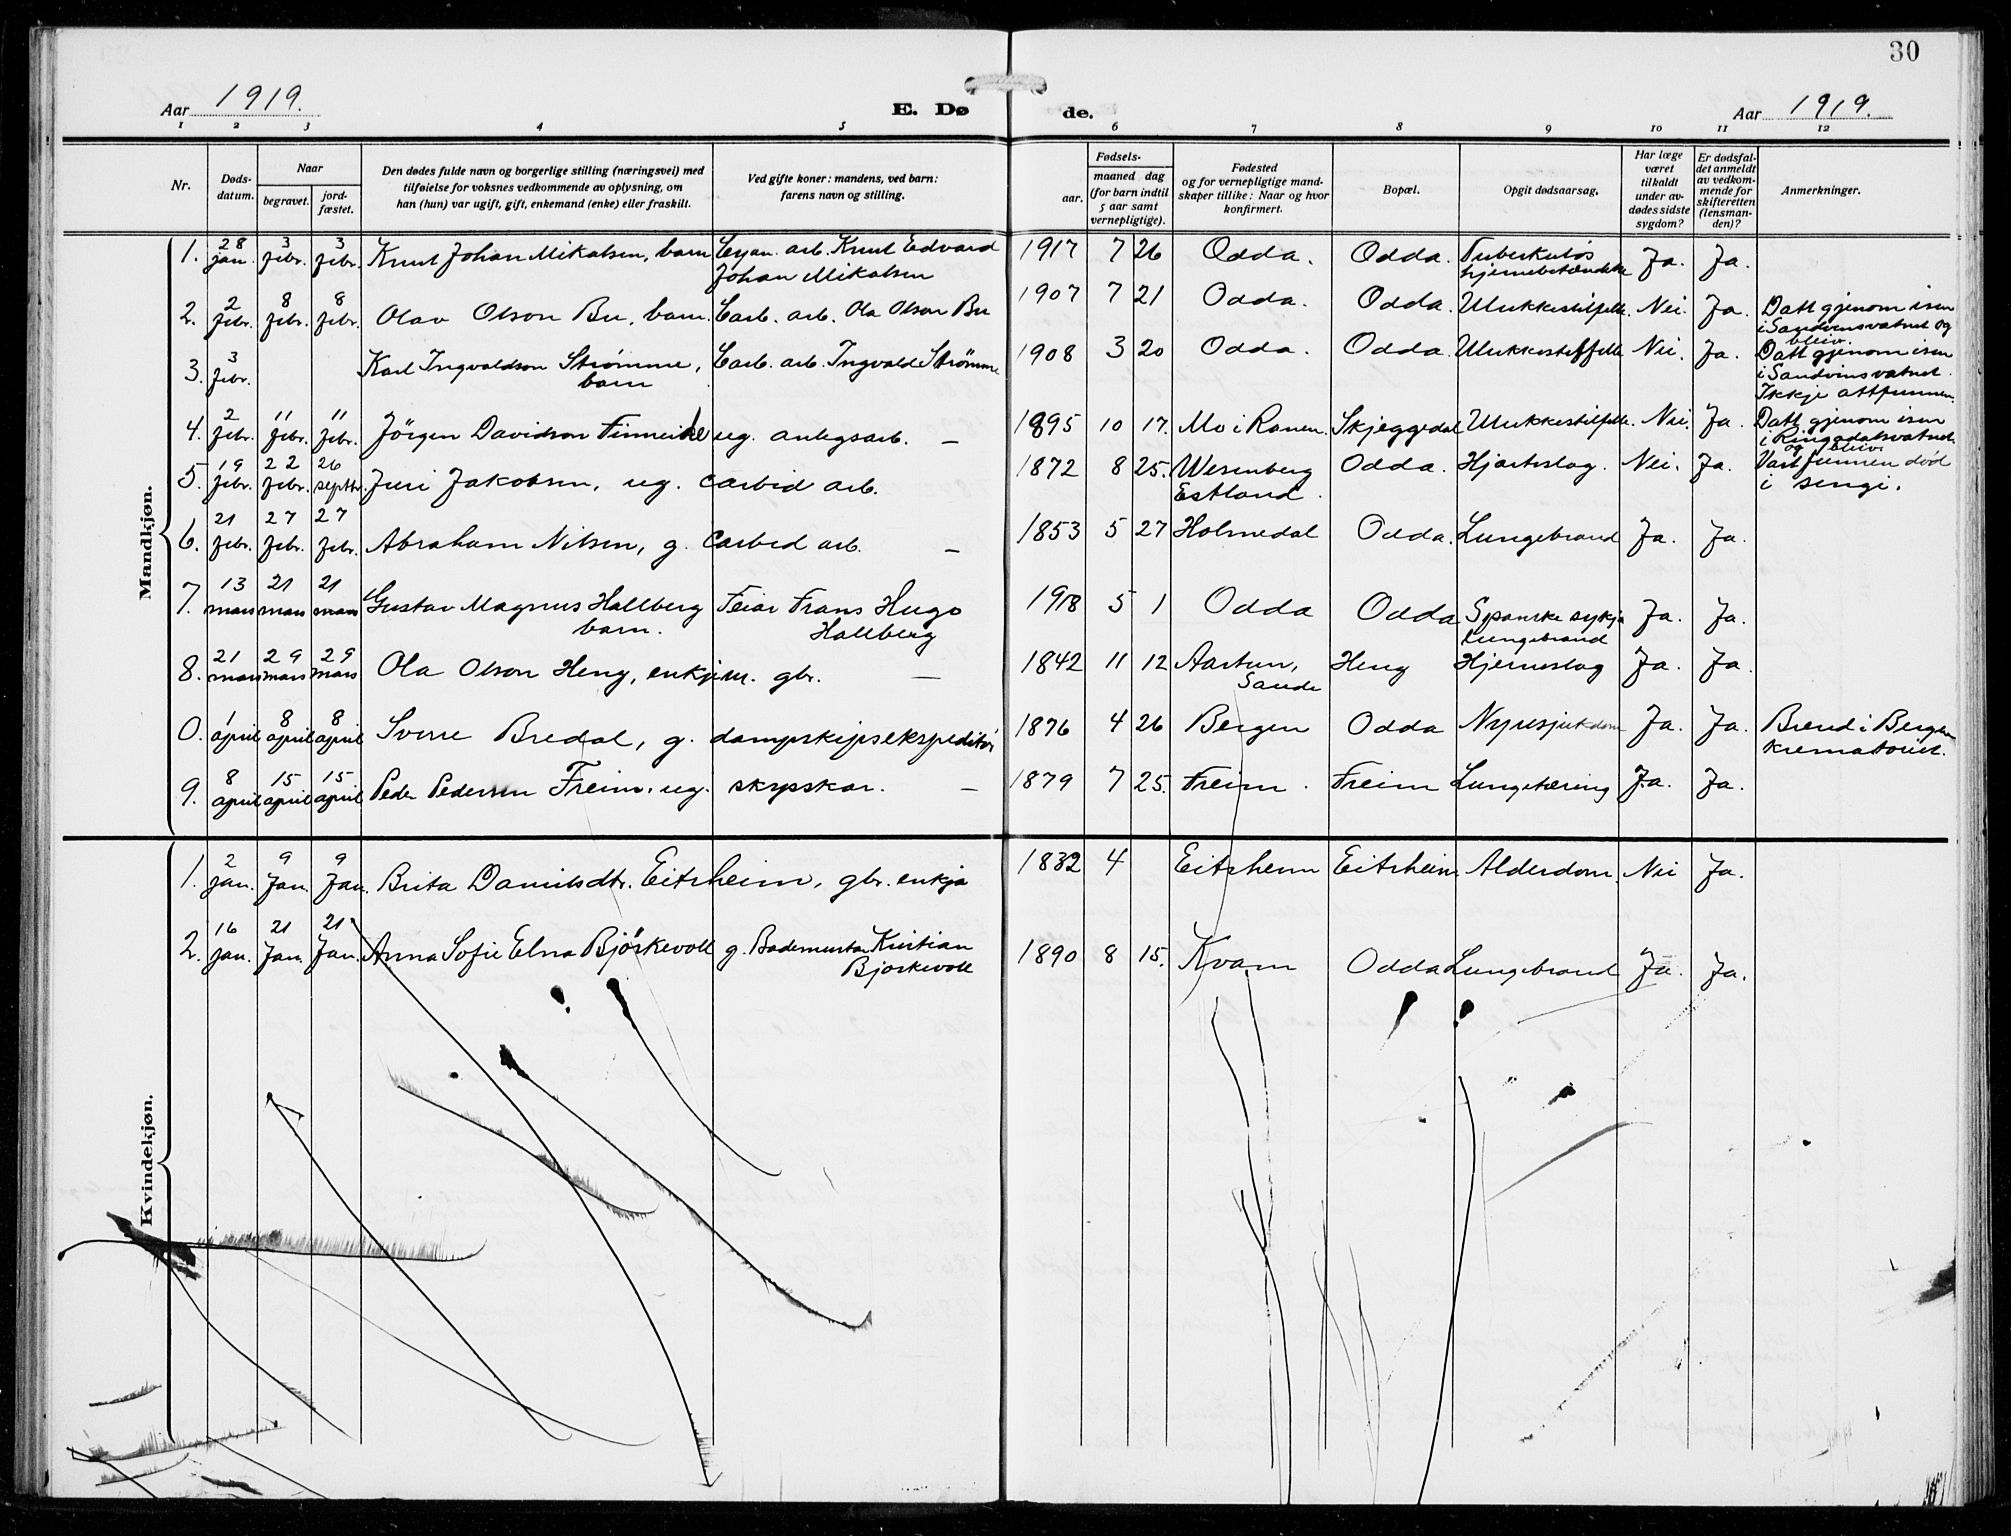 30
Aar 1919. E. Dø de. Aar 1919.
1 2 3 4 5 6 7 8 9 10 11 12
Nr.
Døds-
datum.
Naar
begravet.
jord-
fæstet.
Den dødes fulde navn og borgerlige stilling (næringsvei) med
tilføielse for voksnes vedkommende av oplysning, om
han (hun) var ugift, gift, enkemand (enke) eller fraskilt.
Ved gifte koner: mandens, ved barn:
farens navn og stilling.
Fødsels-
aar.
maaned dag
(for barn indtil
5 aar samt
vernepligtige).
Fødested
og for vernepligtige mand-
skaper tillike: Naar og hvor
konfirmert.
Bopæl.
Opgit dødsaarsag.
Har læge
været
tilkaldt
under av-
dødes sidste
sygdom?
Er dødsfal-
det anmeldt
av vedkom-
mende for
skifteretten
(lensman-
den)?
Anmerkninger.
Mandkjøn.
1. 28 jan. 3 febr. 3 febr. Knut Johan Mikalsen, barn Cyan. arb. Knut Edvard
Johan Mikalsen 1917 7 26 Odda. Odda. Tuberkuløs
hjernebetændelse Ja. Ja.
2. 2 febr. 8 febr. 8 febr. Olav Olson Bu, barn. Carb. arb. Ola Olson Bu 1907 7 21 Odda. Odda. Ulukkestilfelle. Nei. Ja. Datt gjenom isen
i Sandvinsvatnet og
bleiv.
3. 3 febr. Karl Ingvaldson Strømme,
barn Carb. arb. Ingvald Strømme 1908 3 20 Odda. Odda. Ulukkestilfelle Nei. Ja. Datt gjenom isen
i Sandvinsvatnet.
Ikkje attfunnen.
4. 2 febr. 11 febr. 11 febr. Jörgen Davidson ug. anlegsarb. — 1895 10 17. Mo i Ranen. Skjeggedal Ulukkestilfelle. Nei. Ja. Datt gjenom isen
i Ringedalsvatnet
og bleiv.
5. 19 febr. 22 febr. 26 septbr. Juri Jakobsen, ug. carbid arb. 1872 8 25. Wesenberg
Estland. Odda. Hjarteslag. Nei. Ja. Vart funnen død
i sengi.
6. 21 febr. 27 febr. 27 febr. Abraham Nilsen, g. carbid arb. — 1853 5 27 Holmedal Odda. Lungebrand Ja. Ja.
7. 13 mars 21 mars 21 mars Gustav Magnus Hallberg
barn. Feiar Frans Hugo
Hallberg 1918 5 1 Odda Odda Spanske sykja
Lungebrand Ja. Ja.
8. 21 mars 29 mars 29 mars Ola Olson Heng, enkjem. gbr. — 1842 11 12 Aartun,
Sande Heng Hjerneslag Ja. Ja.
0. 1 april 8 april 8 april Sverre Bredal, g. dampskipsekspeditör 1876 4 26 Bergen Odda Nyresjukdom Ja. Ja. Brend i Bergen
krematoriet.
9. 8 april 15 april 15 april Peder Pedersen Freim, ug. skysskar. — 1879 7 25. Freim. Freim Lungetæring Ja. Ja.
Kvindekjøn.
1. 2 jan. 9 Jan. 9 Jan. Brita Danilsdtr. Eitrheim, gbr. enkja 1832 4 Eitrheim Eitrheim Alderdom. Nei Ja.
2. 16 jan. 21 Jan. 21 Jan. Anna Sofie Elna Bjørkevoll g. Bademester Kristian
Bjørkevoll 1890 8 15. Kvam Odda Lungebrand Ja. Ja.